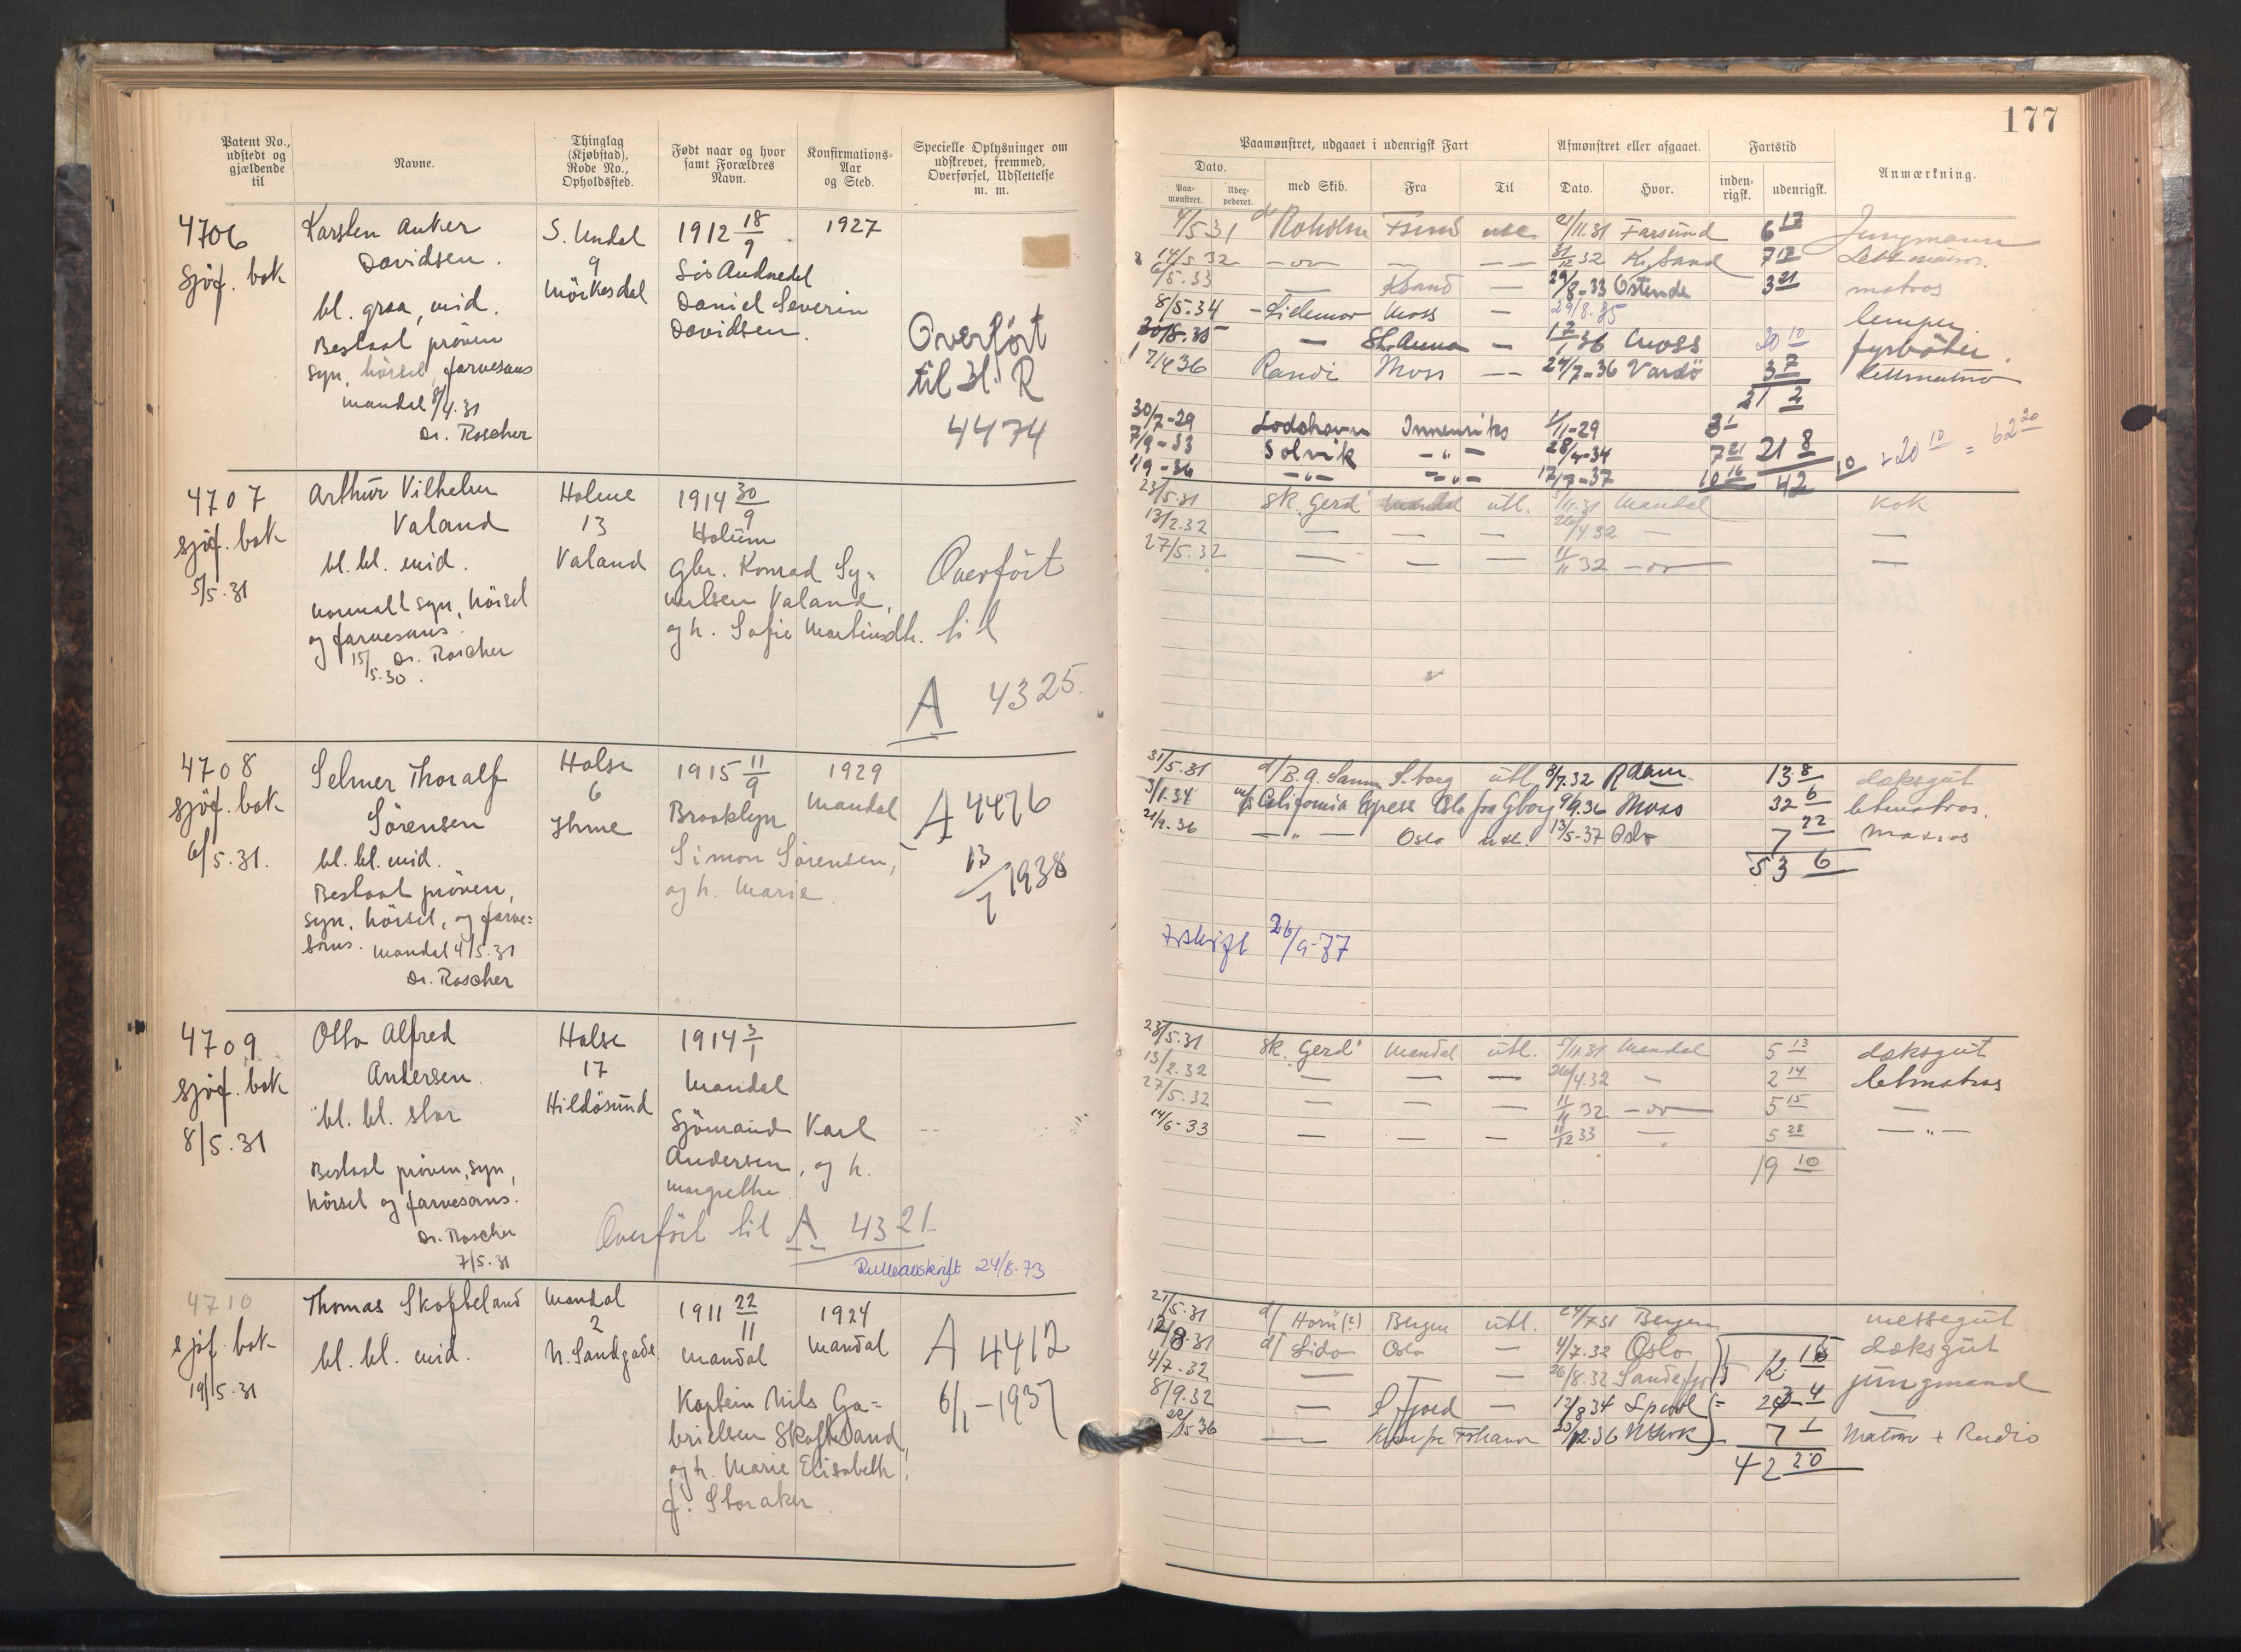 177
Patent No., udstedt og gjældende til
Navne.
Thinglag (Kjøbstad), Rode No., Opholdssted.
Født naar og hvor samt Forældres Navn.
Konfirmations-Aar og Sted.
Specielle Oplysninger om udskrevet, fremmed, Overførsel, Udslettelse m. m.
Paamønstret, udgaaet i udenrigsk Fart
Afmønstret eller afgaaet.
Fartstid
Anmærkning.
Dato.
Paa-mønstret.
med Skib.
Fra
Til
Dato.
Hvor.
inden-rigsk.
udenrigsk.
4706
sjøf. bok
Karsten Anker
Davidsen.
bl. graa, mid.
Bestaat prøven
syn, hørsel, farvesans
Mandal 8/4.31
Dr. Roscher
S. Undal
9
1912 18/9
Daniel Severin
Davidsen.
1927
Overført
til H. R
4474
4/5 31 d/ Roholm Fsund 21/11.31 Farsund 6 17 Jungmann
14/5 32 31/12 32 Kr. Sand 7 17
6/5.33 Ksand 29/8-33 Ostende 3 21 matros
8/5.34 Lidemor Moss 29/8.35 lemper.
30/8.35 St. Anna 17/1 36 Moss 20 10 fyrbøter.
17/4 36 Randi Moss 24/7-36 Vardø 3 7 lettmatros
21 2
30/7-29 Innenriks 1/11-29 3 1
7/9-33 Solvik 28/4-34 7 21 21 8
1/9-36 17/7-37 10 16 42 10 + 20 10 = 62 20
4707
sjøf. bok
5/5.31
Arthur Vilhelm
Valand
bl. bl. mid.
normalt syn, hørsel
og farvesans.
15/5.30. Dr. Roscher
Holme
13
Valand
1914 30/9
Holum
Gbr. Konrad Sy-
vertsen Valand,
og h. Sofie Martinsdtr.
Overført
til
A 4325.
23/5.31 sk. Gerd Mandal utl. 5/11.31 Mandal kok
13/2.32 26/4.32
27/5.32 11/11 32
4708
sjøf. bok
6/5.31.
Selmer Thoralf
Sørensen
bl. bl. mid.
Bestaat prøven,
syn, hørsel, og farve=
sans. Mandal 4/5.31
Dr. Roscher
Halse
6
Ihme
1915 11/9
Brooklyn
Simon Sørensen,
og h. Marie.
1929
Mandal
A 4476
13/1 1938
31/5.31 d/ B. A. Sanne S.borg utl. 8/7.32 Rdam 13 8 dæksgut
3/1.34 m/s California Express Oslo fra Gborg 9/9.36 Moss 32 6 letmatros.
21/9.36 Oslo utl. 13/5-37 Oslo 7 22 matros
53 6
Avskrift 26/9-77
4709
sjøf. bok
8/5.31
Otto Alfred
Andersen
bl. bl. stor
Bestaat prøven, syn,
hørsel og farvesans.
Dr. Roscher
7/5.31
Halse
17
Hildøsund
1914 3/1
Mandal
Sjømand Karl
Andersen, og h.
Margrethe
Overført til A 4321
Rulleavskrift 24/8-73
23/5.31 sk. Gerd Mandal utl. 5/11.31 Mandal 5 13 dæksgut
13/2.32 26/4.32 2 14 letmatros
27/5.32 11/11 32 5 15
14/6-33 11/12 33 5 28
19 10
4710
sjøf. bok
19/5.31
Thomas Skofteland
bl. bl. mid.
Mandal
2
N. Sandgade
1911 22/11
Mandal
Kaptein Nils Ga=
brielsen Skofteland,
og h. Marie Elisabeth,
f. Storaker.
1924
Mandal
A 4412
6/1-1937
21/5.31 d/ Horn(?) Bergen utl. 24/7 31 Bergen messegut
12/8.31 d/ Lido Oslo 4/7.32 Oslo dæksgut
4/7-32 26/8.32 Sandefjord 12 18 jungmand
8/9.32 S. fjord 12/8 34
23/12.36 7 1 Matros + Radio
42 20